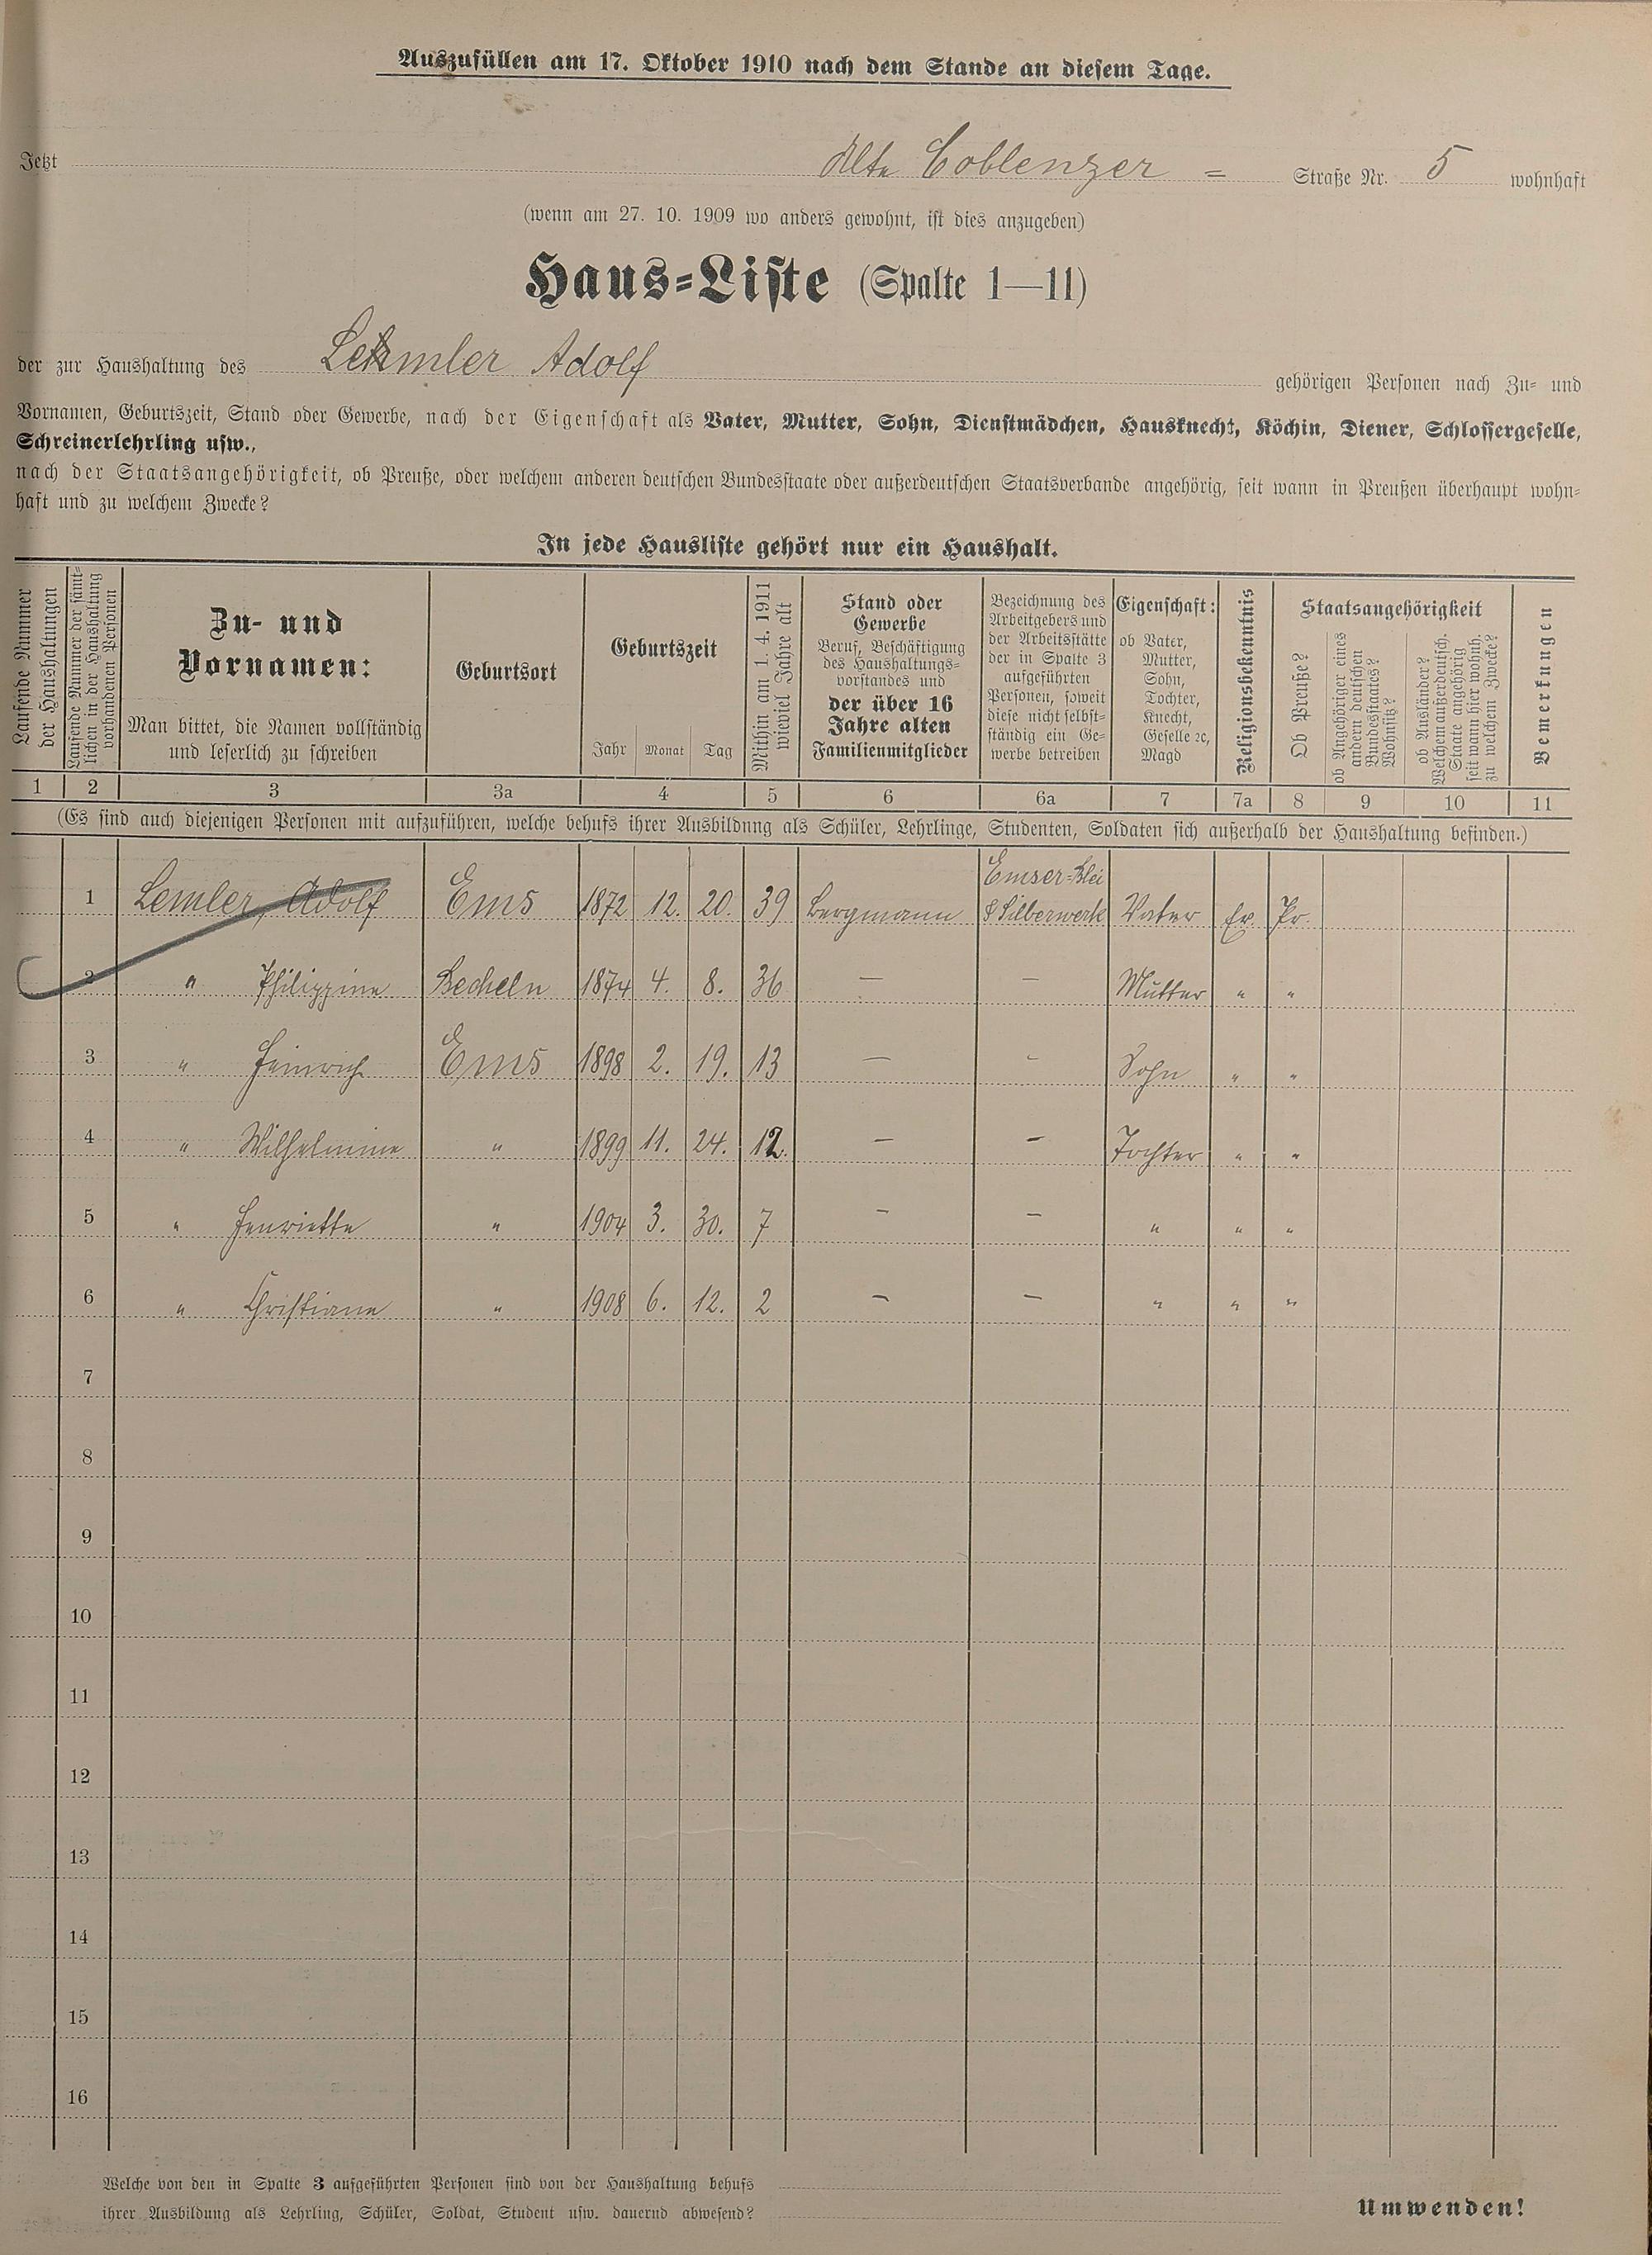 Auszufüllen am 17. Oktober 1910 nach dem Stande an diesem Tage.
Jetzt Alte Coblenzer = Straße Nr. 5 wohnhaft
(wenn am 27. 10. 1909 wo anders gewohnt, ist dies anzugeben)
Haus-Liste (Spalte 1—11)
der zur Haushaltung des Lemler Adolf gehörigen Personen nach Zu- und
Vornamen, Geburtszeit, Stand oder Gewerbe, nach der Eigenschaft als Vater, Mutter, Sohn, Dienstmädchen, Hausknecht, Köchin, Diener, Schlossergeselle,
Schreinerlehrling usw.,
nach der Staatsangehörigkeit, ob Preuße, oder welchem anderen deutschen Bundesstaate oder außerdeutschen Staatsverbande angehörig, seit wann in Preußen überhaupt wohn-
haft und zu welchem Zwecke?
In jede Hausliste gehört nur ein Haushalt.
Laufende Nummer
der Haushaltungen
Laufende Nummer der sämt-
lichen in der Haushaltung
vorhandenen Personen
Zu- und
Vornamen:
Man bittet, die Namen vollständig
und leserlich zu schreiben
Geburtsort
Geburtszeit
Jahr Monat Tag
Mithin am 1. 4. 1911
wieviel Jahre alt
Stand oder
Gewerbe
Beruf, Beschäftigung
des Haushaltungs-
vorstandes und
der über 16
Jahre alten
Familienmitglieder
Bezeichnung des
Arbeitgebers und
der Arbeitsstätte
der in Spalte 3
aufgeführten
Personen, soweit
diese nicht selbst-
ständig ein Ge-
werbe betreiben
Eigenschaft:
ob Vater,
Mutter,
Sohn,
Tochter,
Knecht,
Geselle ꝛc,
Magd
Religionsbekenntnis
Staatsangehörigkeit
Ob Preuße?
ob Angehöriger eines
andern deutschen
Bundesstaates?
Wohnsitz?
ob Ausländer?
Welchem außerdeutsch.
Staate angehörig
seit wann hier wohnh.
zu welchem Zwecke?
Bemerkungen
1 2 3 3a 4 5 6 6a 7 7a 8 9 10 11
(Es sind auch diejenigen Personen mit aufzuführen, welche behufs ihrer Ausbildung als Schüler, Lehrlinge, Studenten, Soldaten sich außerhalb der Haushaltung befinden.)
1 Lemler, Adolf Ems 1872 12. 20. 39 Bergmann Emser-Blei & Silberwerk Vater Ev. Pr.
2 " Philippine Becheln 1874 4. 8. 36 — — Mutter " "
3 " Heinrich Ems 1898 2. 19. 13 — - Sohn " "
4 " Wilhelmine " 1899 11. 24. 12. — — Tochter " "
5 " Henriette " 1904 3. 30. 7 — — " " "
6 " Christiane " 1908 6. 12. 2 — — " " "
7
8
9
10
11
12
13
14
15
16
Welche von den in Spalte 3 aufgeführten Personen sind von der Haushaltung behufs
ihrer Ausbildung als Lehrling, Schüler, Soldat, Student usw. dauernd abwesend?
Umwenden!